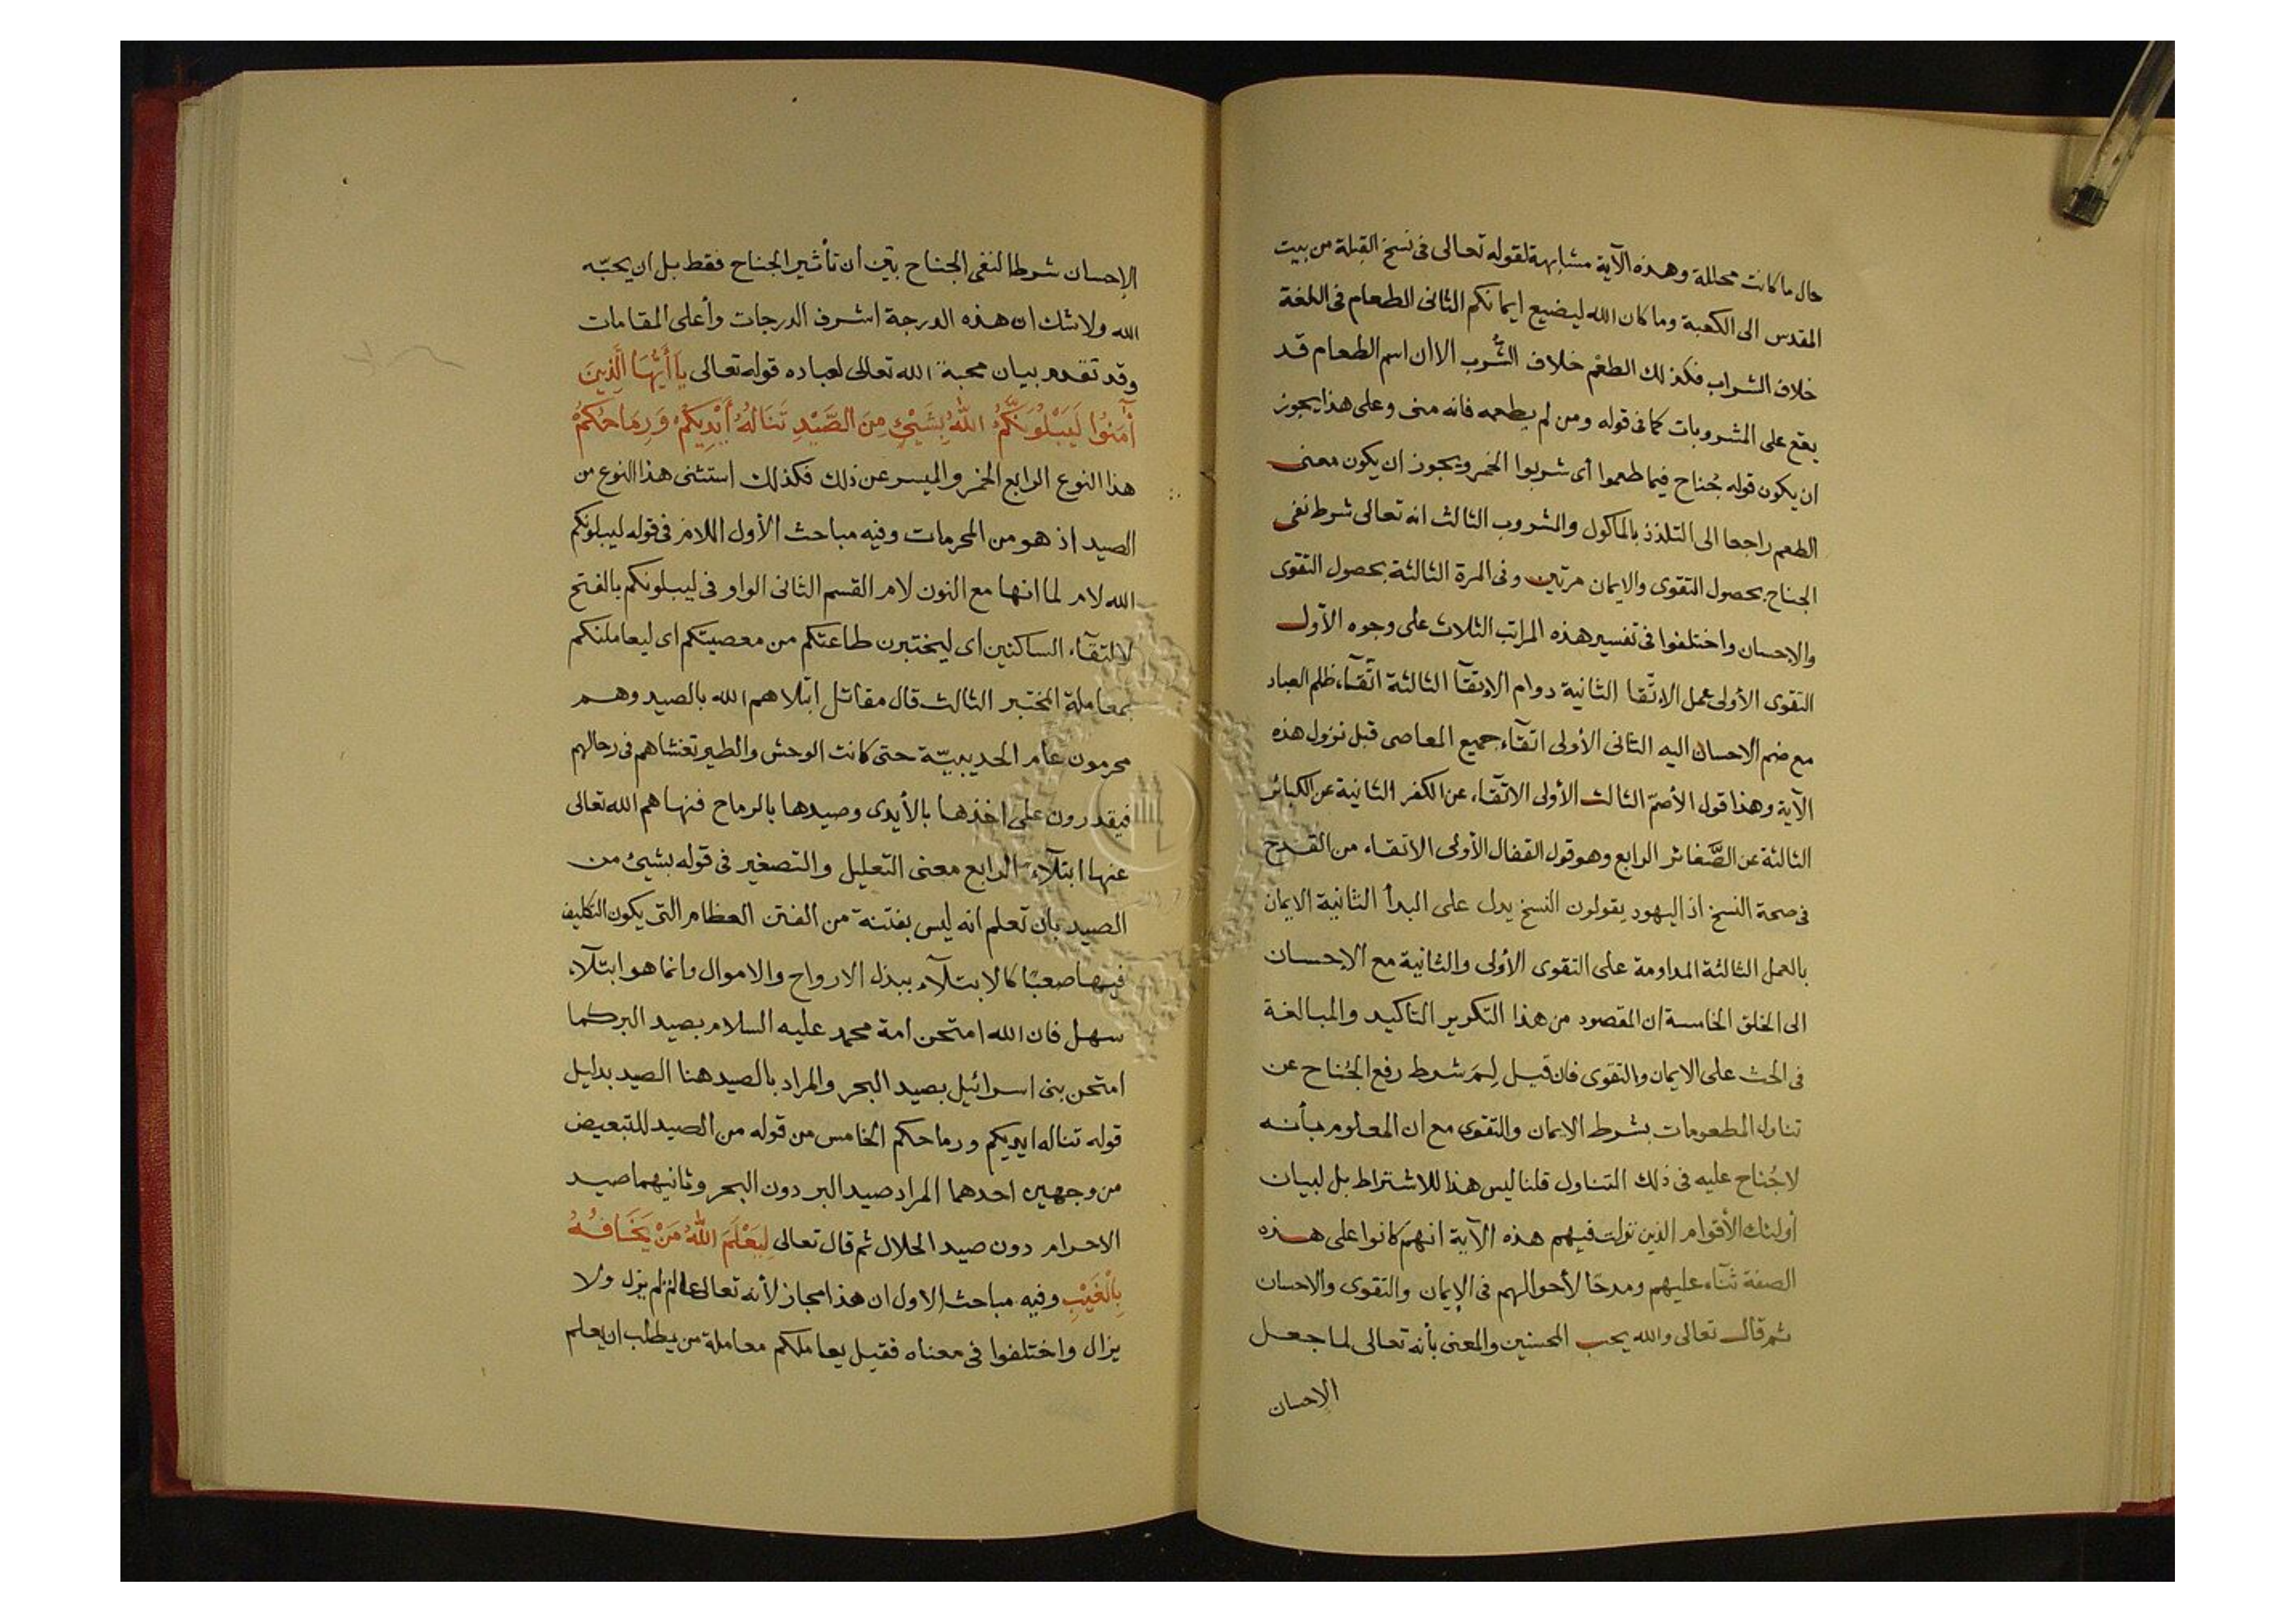 حال ما كانت محللة وهذه الآية مشابهة لقوله تعالى فى نسخ القبلة من بيت
المقدس الى الكعبة وما كان الله ليضيع ايمانكم الثانى الطعام فى اللغة
خلاف الشراب فكذلك الطعْم خلاف الشُّرب الا ان اسم الطعام قد
يقع على المشروبات كما فى قوله ومن لم يطعمه فانه منى وعلى هذا يجوز
ان يكون قوله جُناح فيما طعموا أى شربوا الخمر ويجوز ان يكون معنى
الطعم راجعا الى التلذذ بالمأكول والمشروب الثالث انه تعالى شرط نفى
الجناح بحصول التقوى والايمان مرتين وفى المرة الثالثة بحصول التقوى
والاحسان واختلفوا فى تفسير هذه المراتب الثلاث على وجوه الأول
التقوى الأولى عمل الاتّقا الثانية دوام الاتقآ الثالثة اتّقآء ظلم العباد
مع ضم الاحسان اليه الثانى الأولى اتقآء جميع المعاصى قبل نزول هذه
الآية وهذا قول الأصمّ الثالث الأولى الاتقآء عن الكفر الثانية عن الكبائر
الثالثة عن الصَّغائر الرابع وهو قول القفال الأولى الاتقاء من القدح
فى صحة النسخ اذ اليهود يقولون النسخ يدل على البدأ الثانية الايمان
بالعمل الثالثة المداومة على التقوى الأولى والثانية مع الإحسان
الى الخلق الخامسة ان المقصود من هذا التكرير التاكيد والمبالغة
فى الحث على الايمان والتقوى فان قيل لِمَ شرط رفع الجُناح عن
تناول المطعومات بشرط الايمان والتقوى مع ان المعلوم بأنه
لا جُناح عليه فى ذلك التناول قلنا ليس هذا للاشتراط بل لبيان
أولئك الأقوام الذين نزلت فيهم هذه الآية انهم كانوا على هذه
الصفة ثنآء عليهم ومدحًا لأحوالهم فى الإيمان والتقوى والاحسان
ثم قال تعالى والله يحب المحسنين والمعنى بأنه تعالى لما جعل
الإحسان
الإحسان شرطا لنفى الجناح بيّن ان تأثير الجناح فقط بل ان يحبّه
الله ولا شك ان هذه الدرجة اشرف الدرجات وأعلى المقامات
وقد تقدم بيان محبة الله تعالى لعباده قوله تعالى يَا أَيُّهَا الَّذِينَ
آمَنُوا لَيَبْلُوَنَّكُمُ اللهُ بِشَيْئٍ مِنَ الصَّيْدِ تَنَالُهُ أَيْدِيكُمْ وَرِمَاحُكُمْ
هذا النوع الرابع الخمر والميسر عن ذلك فكذلك استثنى هذا النوع من
الصيد اذ هو من المحرمات وفيه مباحث الأول اللام فى قوله ليبلونكم
الله لام لما انها مع النون لام القسم الثانى الواو فى ليبلونكم بالفتح
لالتقآء الساكنين اى ليختبرن طاعتكم من معصيتكم اى ليعاملنكم
بمعاملة المختبر الثالث قال مقاتل ابتلاهم الله بالصيد وهم
محرمون عام الحديبيّة حتى كانت الوحش والطير تغشاهم فى رحالهم
فيقدرون على اخذها بالأيدى وصيدها بالرماح فنهاهم الله تعالى
عنها ابتلآء الرابع معنى التعليل والتصغير فى قوله بشيئ من
الصيد بان تعلم انه ليس بفتنة من الفتن العظام التى يكون التكليف
فيها صعبًا كالابتلآء ببذل الارواح والاموال وانما هو ابتلآء
سهل فان الله امتحن امة محمد عليه السلام بصيد البر كما
امتحن بنى اسرائيل بصيد البحر والمراد بالصيد هنا الصيد بدليل
قوله تناله ايديكم ورماحكم الخامس من قوله من الصيد للتبعيض
من وجهين احدهما المراد صيد البر دون البحر وثانيهما صيد
الاحرام دون صيد الحلال ثم قال تعالى لِيَعْلَمَ اللهُ مَنْ يَخَافُهُ
بِالْغَيْبِ وفيه مباحث الاول ان هذا مجاز لأنه تعالى عالم لم يزل ولا
يزال واختلفوا فى معناه فقيل يعاملكم معاملة من يطلب ان يعلم